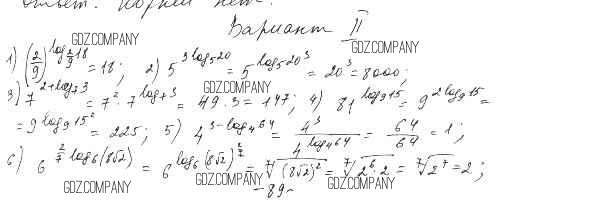 Ответ: корней нет.
Вариант II
GDZ.COMPANY GDZ.COMPANY
1) (2/9)^{log_{2/9} 18} = 18; 2) 5^{3 log_5 20} = 5^{log_5 20^3} = 20^3 = 8000;
GDZ.COMPANY
3) 7^{2+log_7 3} = 7^2 · 7^{log_7 3} = 49 · 3 = 147; 4) 81^{log_9 15} = 9^{2 log_9 15} =
= 9^{log_9 15^2} = 225; 5) 4^{3-log_4 64} = 4^3/4^{log_4 64} = 64/64 = 1;
6) 6^{2/7 log_6 (8√2)} = 6^{log_6 (8√2)^{2/7}} = ⁷√(8√2)^2 = ⁷√2^6 · 2 = ⁷√2^7 = 2;
GDZ.COMPANY GDZ.COMPANY GDZ.COMPANY
- 89 -